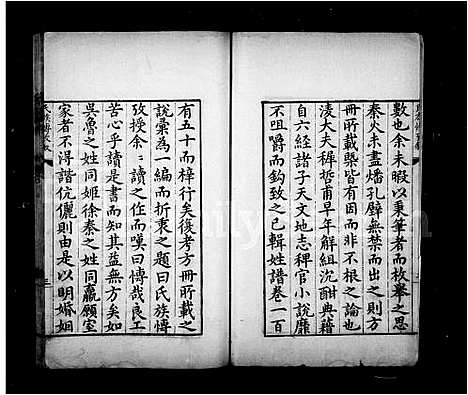 數也余未暇以秉筆者而枚舉之思
秦火未盡燔孔壁無禁而出之則方
冊所載槩皆有因而非不根之論也
淩大夫稺哲甫早年解組沉酣典籍
自六經諸子天文地志稗官小說靡
不咀嚼而鈎致之已輯姓譜卷一百
有五十而梓行矣後考方冊所載之
說彙為一編而折衷之題曰氏族博
攷授余余讀之作而嘆曰博哉良工
苦心乎讀是書而知其益無方矣如
吳魯之姓同姬徐秦之姓同嬴願室
家者不得諧伉儷則由是以明婚姻
三